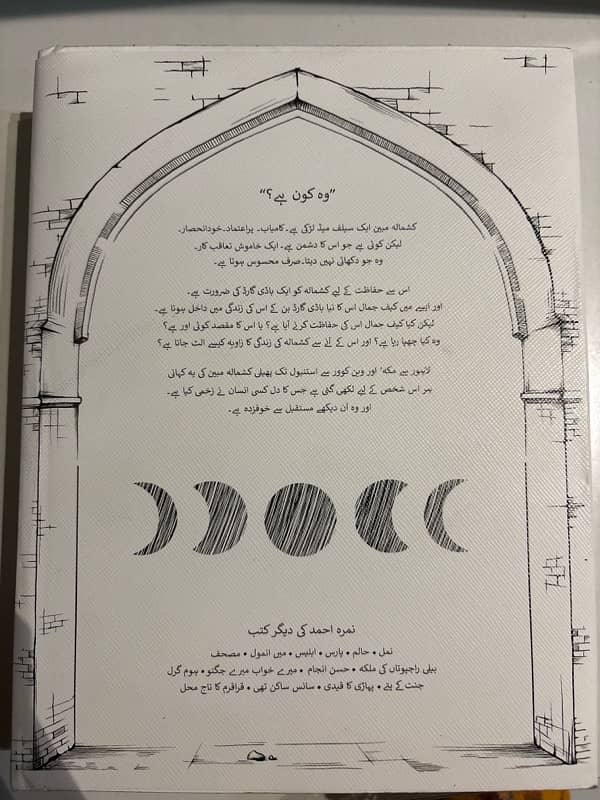 ”وہ کون ہے؟“
کشمالہ مبین ایک سیلف میڈ لڑکی ہے۔ کامیاب۔ پراعتماد۔خودانحصار۔
لیکن کوئی ہے جو اس کا دشمن ہے۔ ایک خاموش تعاقب کار۔
وہ جو دکھائی نہیں دیتا۔صرف محسوس ہوتا ہے۔
اس سے حفاظت کے لیے کشمالہ کو ایک باڈی گارڈ کی ضرورت ہے۔
اور ایسے میں کیف جمال اس کا نیا باڈی گارڈ بن کے اس کی زندگی میں داخل ہوتا ہے۔
لیکن کیا کیف جمال اس کی حفاظت کرنے آیا ہے؟ یا اس کا مقصد کوئی اور ہے؟
وہ کیا چھپا رہا ہے؟ اور اس کے آنے سے کشمالہ کی زندگی کا زاویہ کیسے الٹ جاتا ہے؟
لاہور سے مکہ' اور وین کوور سے استنبول تک پھیلی کشمالہ مبین کی یہ کہانی
ہر اس شخص کے لیے لکھی گئی ہے جس کا دل کسی انسان نے زخمی کیا ہے۔
اور وہ ان دیکھے مستقبل سے خوفزدہ ہے۔
نمرہ احمد کی دیگر کتب
نمل • حالم • پارس • ابلیس • میں انمول • مصحف
بیلی راجپوتاں کی ملکہ • حسن انجام • میرے خواب میرے جگنو • ہوم گرل
جنت کے پتے • پہاڑی کا قیدی • سانس ساکن تھی • قراقرم کا تاج محل